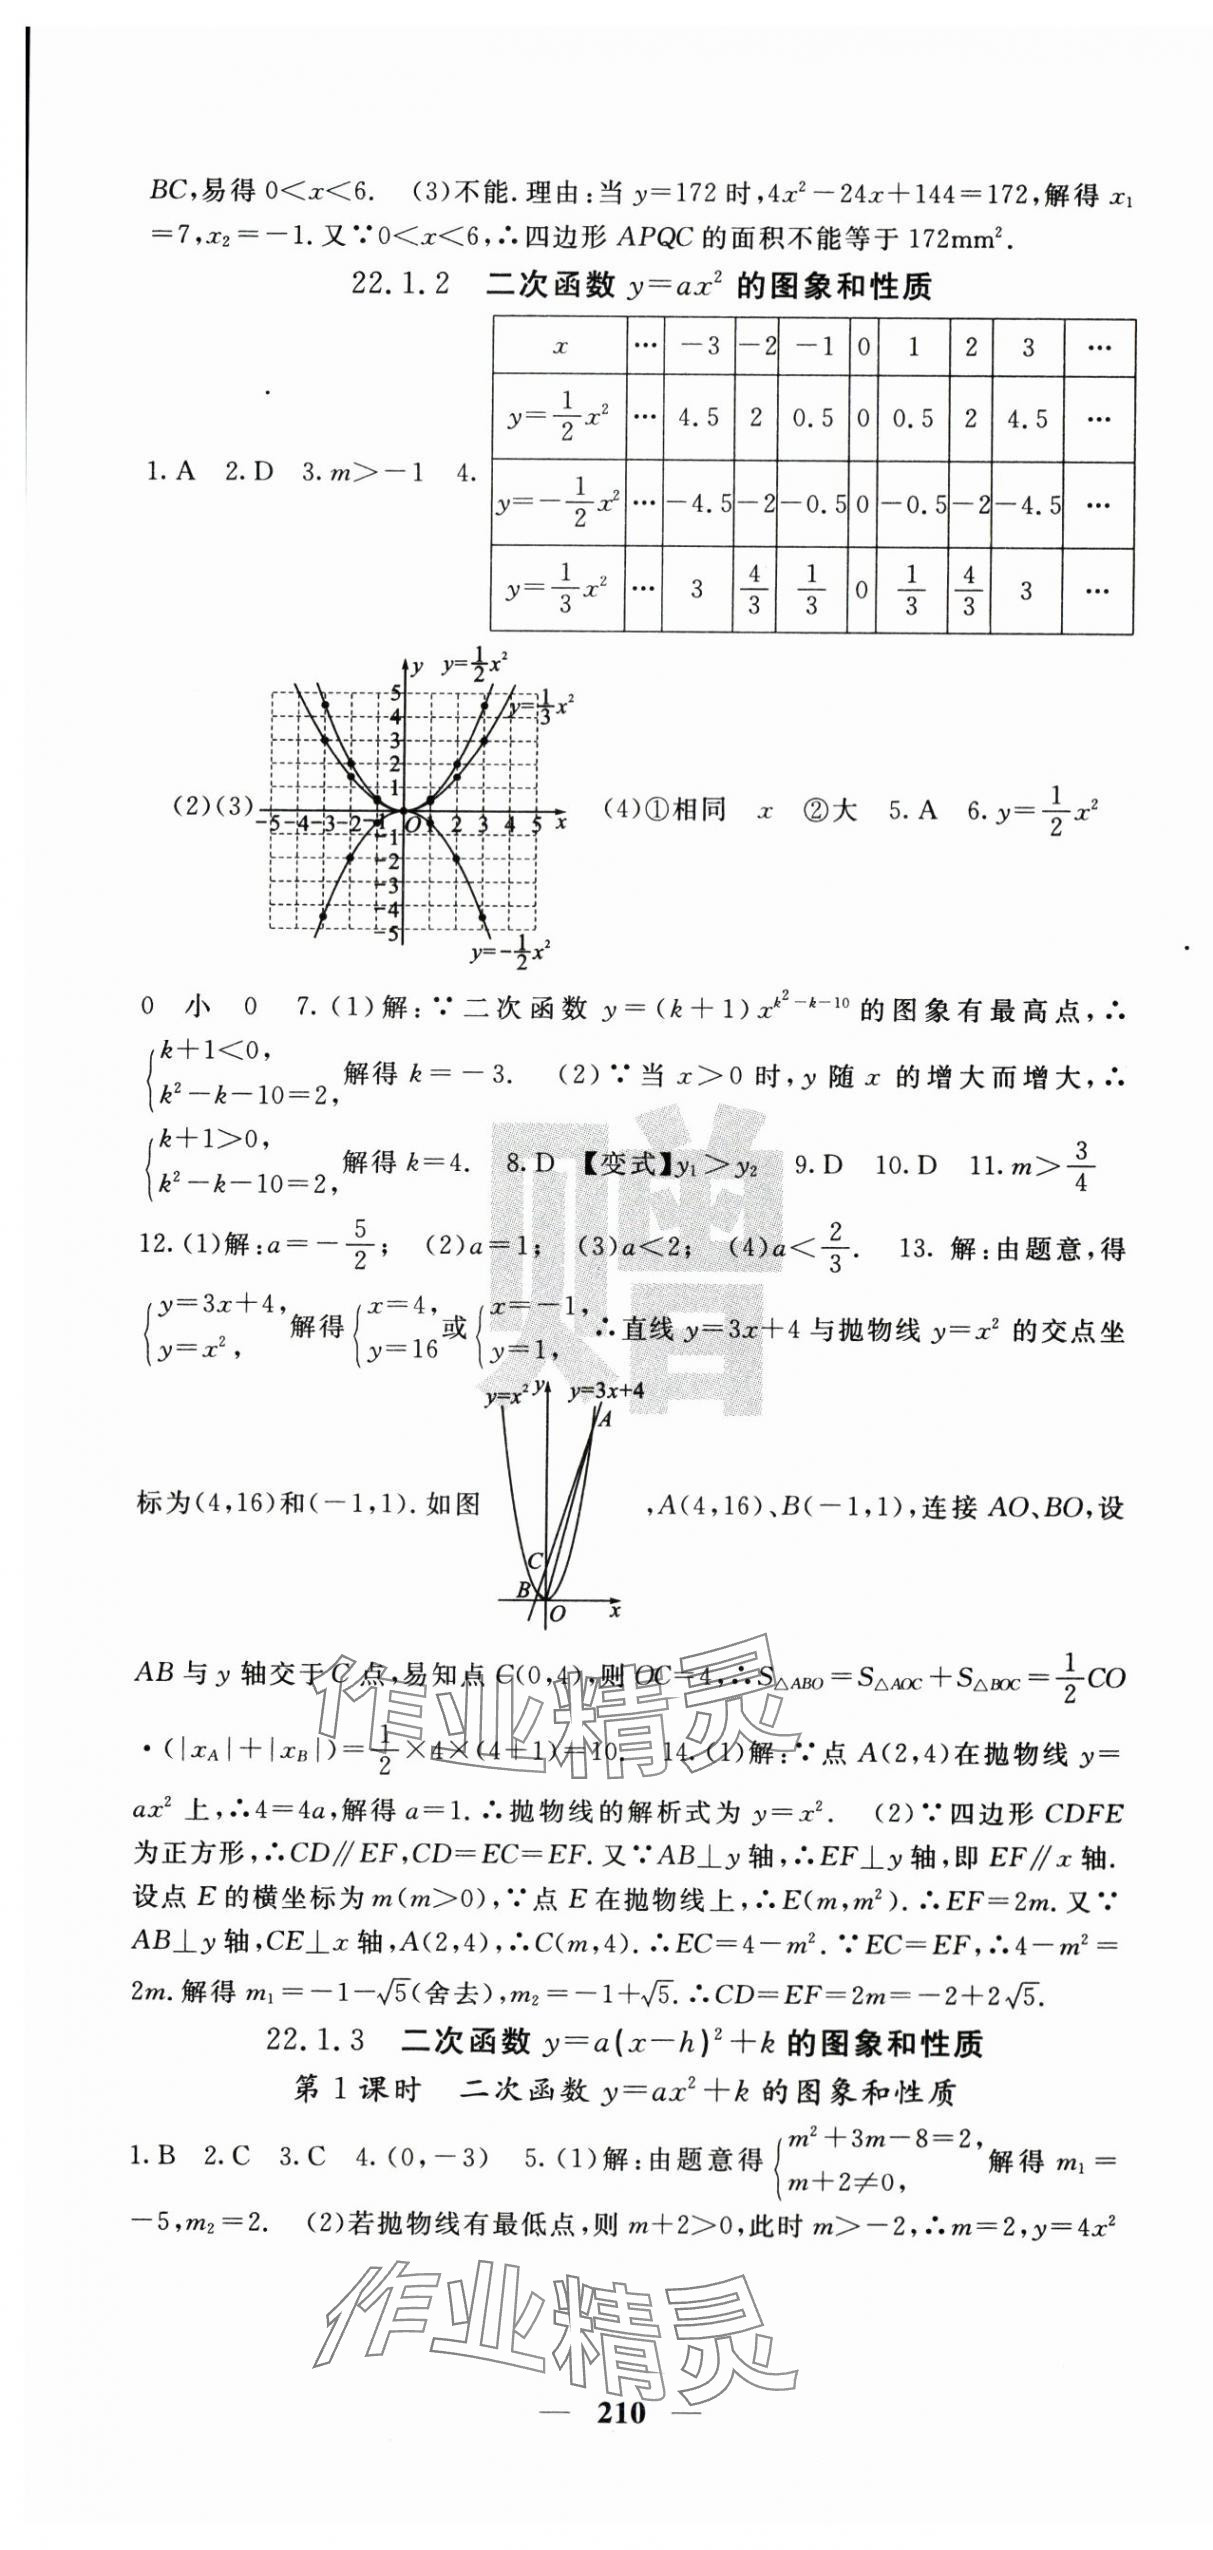 BC,易得 0<x<6. (3)不能.理由:当 y=172 时,4x²-24x+144=172,解得 x₁
=7,x₂=-1.又∵0<x<6,∴四边形 APQC 的面积不能等于 172mm².
22.1.2 二次函数 y=ax² 的图象和性质
x … -3 -2 -1 0 1 2 3 …
y=1/2x² … 4.5 2 0.5 0 0.5 2 4.5 …
1.A 2.D 3.m>-1 4.
y=-1/2x² … -4.5 -2 -0.5 0 -0.5 -2 -4.5 …
y=1/3x² … 3 4/3 1/3 0 1/3 4/3 3 …
y y=1/2x²
y=1/3x²
5
4
3
2
1
(2)(3)
-5 -4 -3 -2 -1 O 1 2 3 4 5 x
-1
-2
-3
-4
-5
y=-1/2x²
(4)①相同 x ②大 5.A 6.y=1/2x²
0 小 0 7.(1)解:∵二次函数 y=(k+1)x^(k²-k-10) 的图象有最高点,∴
{k+1<0, k²-k-10=2, 解得 k=-3. (2)∵当 x>0 时,y 随 x 的增大而增大,∴
{k+1>0, k²-k-10=2, 解得 k=4. 8.D 【变式】y₁>y₂ 9.D 10.D 11.m>3/4
12.(1)解:a=-5/2; (2)a=1; (3)a<2; (4)a<2/3. 13. 解:由题意,得
{y=3x+4, y=x², 解得 {x=4, y=16 或 {x=-1, y=1, ∴直线 y=3x+4 与抛物线 y=x² 的交点坐
赠
y=x² y y=3x+4
A
标为(4,16)和(-1,1).如图 ,A(4,16)、B(-1,1),连接 AO、BO,设
C
B
O x
AB 与 y 轴交于 C 点,易知点 C(0,4),则 OC=4,∴S△ABO=S△AOC+S△BOC=1/2CO
·(|xA|+|xB|)=1/2×4×(4+1)=10. 14.(1)解:∵点 A(2,4)在抛物线 y=
作业精灵
ax² 上,∴4=4a,解得 a=1.∴抛物线的解析式为 y=x². (2)∵四边形 CDFE
为正方形,∴CD∥EF,CD=EC=EF.又∵AB⊥y 轴,∴EF⊥y 轴,即 EF∥x 轴.
设点 E 的横坐标为 m(m>0),∵点 E 在抛物线上,∴E(m,m²).∴EF=2m.又∵
AB⊥y 轴,CE⊥x 轴,A(2,4),∴C(m,4).∴EC=4-m².∵EC=EF,∴4-m²=
2m.解得 m₁=-1-√5(舍去),m₂=-1+√5.∴CD=EF=2m=-2+2√5.
22.1.3 二次函数 y=a(x-h)²+k 的图象和性质
第 1 课时 二次函数 y=ax²+k 的图象和性质
1.B 2.C 3.C 4.(0,-3) 5.(1)解:由题意得 {m²+3m-8=2, m+2≠0, 解得 m₁=
-5,m₂=2. (2)若抛物线有最低点,则 m+2>0,此时 m>-2,∴m=2,y=4x²
作业精灵
— 210 —